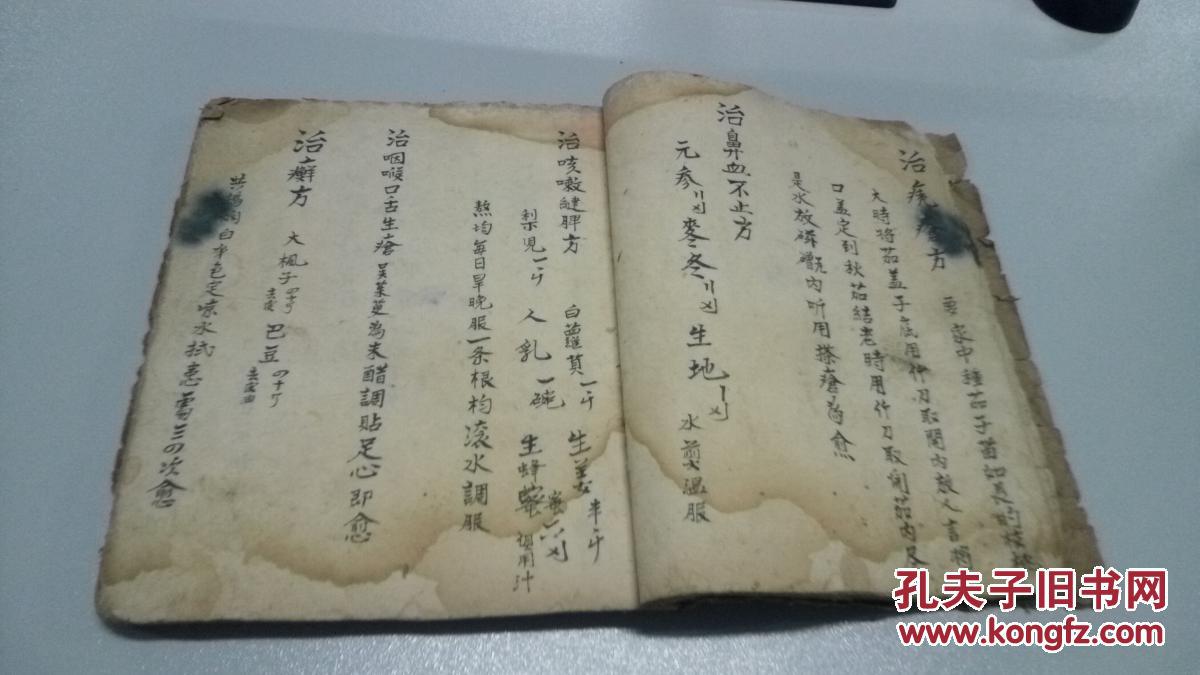 治 瘡方 要家中種茄子苗如長的
大時將茄盖子底用竹刀取開内放人言
口盖定到秋茄結老時用竹刀取 茄内
是水放磁 内听用搽瘡為愈
治鼻血不止方
元參 麥冬 生地 水煎温服
治咳嗽 方 白蘿蔔一斤 生姜半斤
梨児一斤 人乳一碗 生蜂蜜 六 俱用汁
熬均每日早晚服一条根均滚水調服
治咽喉口舌生瘡吴茱萸為末醋調貼足心即愈
治癬方 大楓子四十个去皮 巴豆四十个去皮油
白 色定凉水 三四次愈
孔夫子旧书网
www.kongfz.com